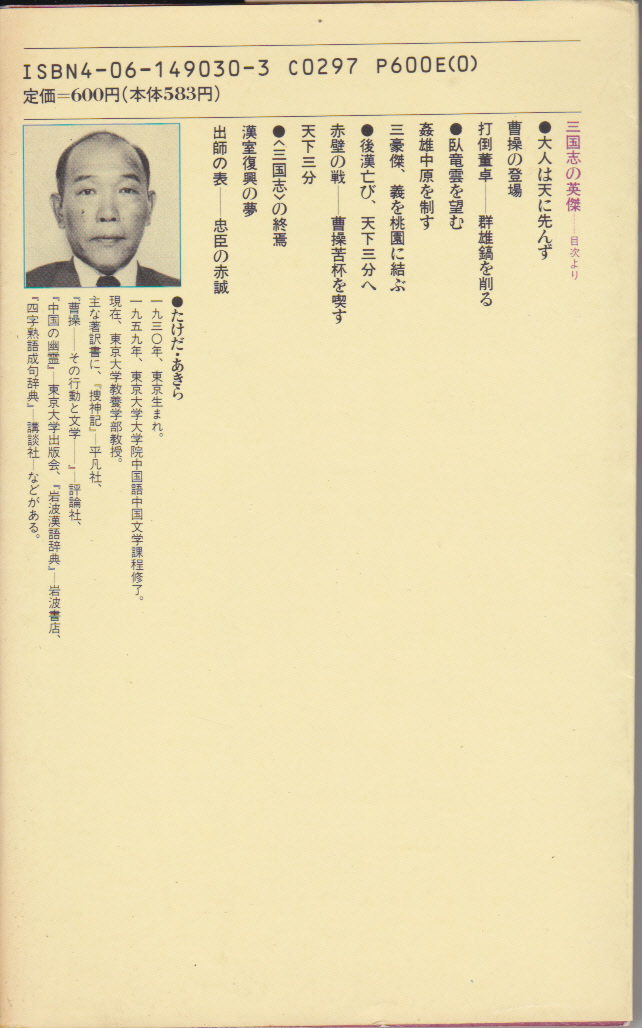 ISBN4-06-149030-3 C0297 P600E(0)
定価=600円(本体583円)
三国志の英傑——目次より
●大人は天に先んず
曹操の登場
打倒董卓——群雄鎬を削る
●臥竜雲を望む
姦雄中原を制す
三豪傑、義を桃園に結ぶ
●後漢亡び、天下三分へ
赤壁の戦——曹操苦杯を喫す
天下三分
●〈三国志〉の終焉
漢室復興の夢
出師の表——忠臣の赤誠
●たけだ・あきら
一九三〇年、東京生まれ。
一九五九年、東京大学大学院中国語中国文学課程修了。
現在、東京大学教養学部教授。
主な著訳書に、『捜神記』—平凡社、
『曹操——その行動と文学——』—評論社、
『中国の幽霊』—東京大学出版会、『岩波漢語辞典』—岩波書店、
『四字熟語成句辞典』—講談社—などがある。